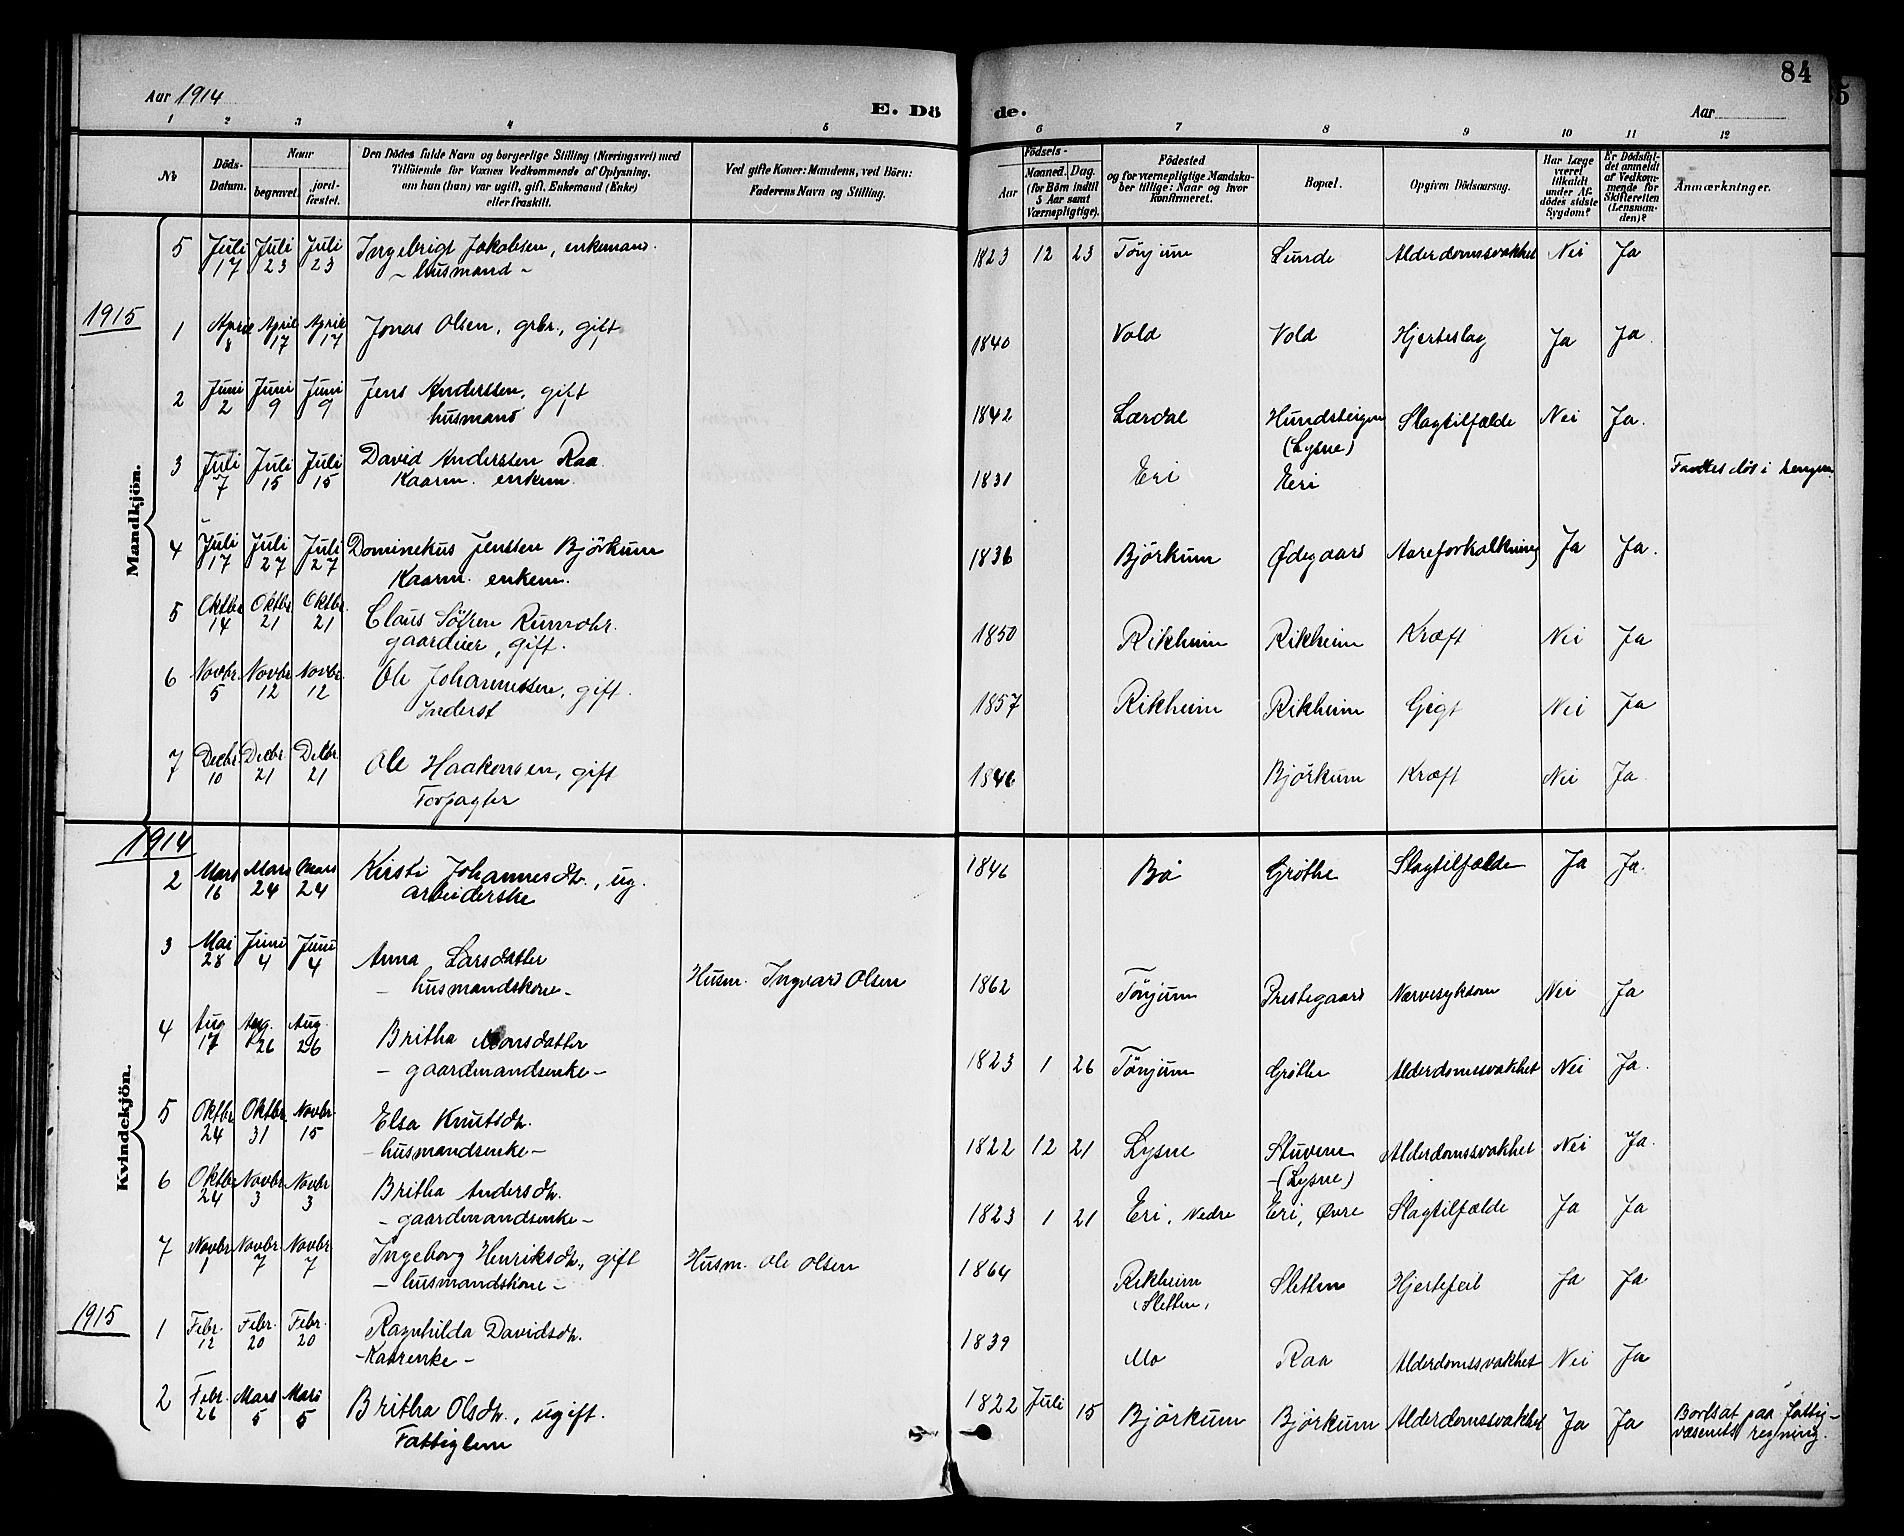 84
Aar 1914
E. Dö
de.
Aar
1 2 3 4 5 6 7 8 9 10 11 12
No
Döds-Datum.
Naar
begravet.
jord-fæstet.
Den Dödes fulde Navn og borgerlige Stilling (Næringsvei) med
Tilföiende for Voxnes Vedkommende af Oplysning,
om han (hun) var ugift, gift, Enkemand (Enke)
eller fraskilt.
Ved gifte Koner: Mandens, ved Börn:
Faderens Navn og Stilling.
Födsels-
Aar
Maaned. Dag.
(for Börn indtil
5 Aar samt
Værnepligtige).
Födested
og for værnepligtige Mandska-
ber tillige: Naar og hvor
konfirmeret.
Bopæl.
Opgiven Dödsaarsag.
Har Læge
været
tilkaldt
under Af-
dödes sidste
Sygdom?
Er Dödsfal-
det anmeldt
af Vedkom-
mende for
Skifteretten
(Lensman-
den)?
Anmærkninger.
Mandkjön.
5 Juli 17 Juli 23 Juli 23 Ingebrigt Jakobsen, enkemand. 1823 12 23 Tönjum Lunde Alderdomssvakhet Nei Ja
- husmand -
1915
1 April 8 April 17 April 17 Jonas Olsen, grbr., gift 1840 Vold Vold Hjerteslag Ja Ja
2 Juni 2 Juni 9 Juni 9 Jens Anderssen, gift 1842 Lærdal Hundsteigen Slagtilfælde Nei Ja.
husmand (Lysne)
3 Juli 7 Juli 15 Juli 15 David Anderssen Raa 1831 Eri Eri Fandtes död i sengen
Kaarm. enkem.
4 Juli 17 Juli 27 Juli 27 Dominekus Jenssen Björkum 1836 Björkum Ødegaard Aareforkalkning Ja Ja.
Kaarm. enkem.
5 Oktbr 14 Oktbr 21 Oktbr. 21 Claus Sören Rumohr. 1850 Rikheim Rikheim Kræft Nei Ja
gaardeier, gift.
6 Novbr. 5 Novbr 12 Novbr. 12 Ole Johannessen, gift. 1857 Rikheim Rikheim Gigt Nei Ja
Inderst
7 Decbr. 10 Decbr 21 Decbr. 21 Ole Haakonsen, gift 1846 Björkum Kræft Nei Ja
Forpagter
Kvindekjön.
1914
2 Mars 16 Mars 24 Mars 24 Kirsti Johannesdtr., ug. 1846 Bö Gröthe Slagtilfælde Ja Ja.
arbeiderske
3 Mai 28 Juni 4 Juni 4 Anna Larsdatter Husm. Ingvard Olsen 1862 Tönjum Prestegaard Nervesykdom Nei Ja
- husmandskone -
4 Aug 17 Aug. 26 Aug. 26 Britha Monsdatter 1823 1 26 Tönjum Gröthe Alderdomssvakhet Nei Ja.
- gaardmandsenke -
5 Oktbr 24 Oktbr. 31 Novbr. 15 Elsa Knutsdtr. 1822 12 21 Lysne Stuvene Alderdomssvakhet Nei Ja.
- husmandsenke - (Lysne)
6 Oktbr 24 Novbr 3 Novbr 3 Britha Andersdtr. 1823 1 21 Eri, Nedre Eri, Øvre Slagtilfælde Ja Ja
- gaardmandsenke -
7 Novbr 1 Novbr. 7 Novbr 7 Ingeborg Henriksdtr., gift Husm. Ole Olsen 1864 Rikheim Sletten Hjertefeil Ja Ja
- husmandskone - (Sletten)
1915
1 Febr. 12 Febr. 20 Febr. 20 Ragnhilda Davidsdtr. 1839 Mo Raa Alderdomssvakhet Nei Ja
- Kaarenke -
2 Febr. 26 Mars 5 Mars 5 Britha Olsdtr., ugift. 1822 Juli 15 Björkum Björkum Alderdomssvakhet Ja Ja Bortsat paa fattig-
Fattiglem væsenets regning.